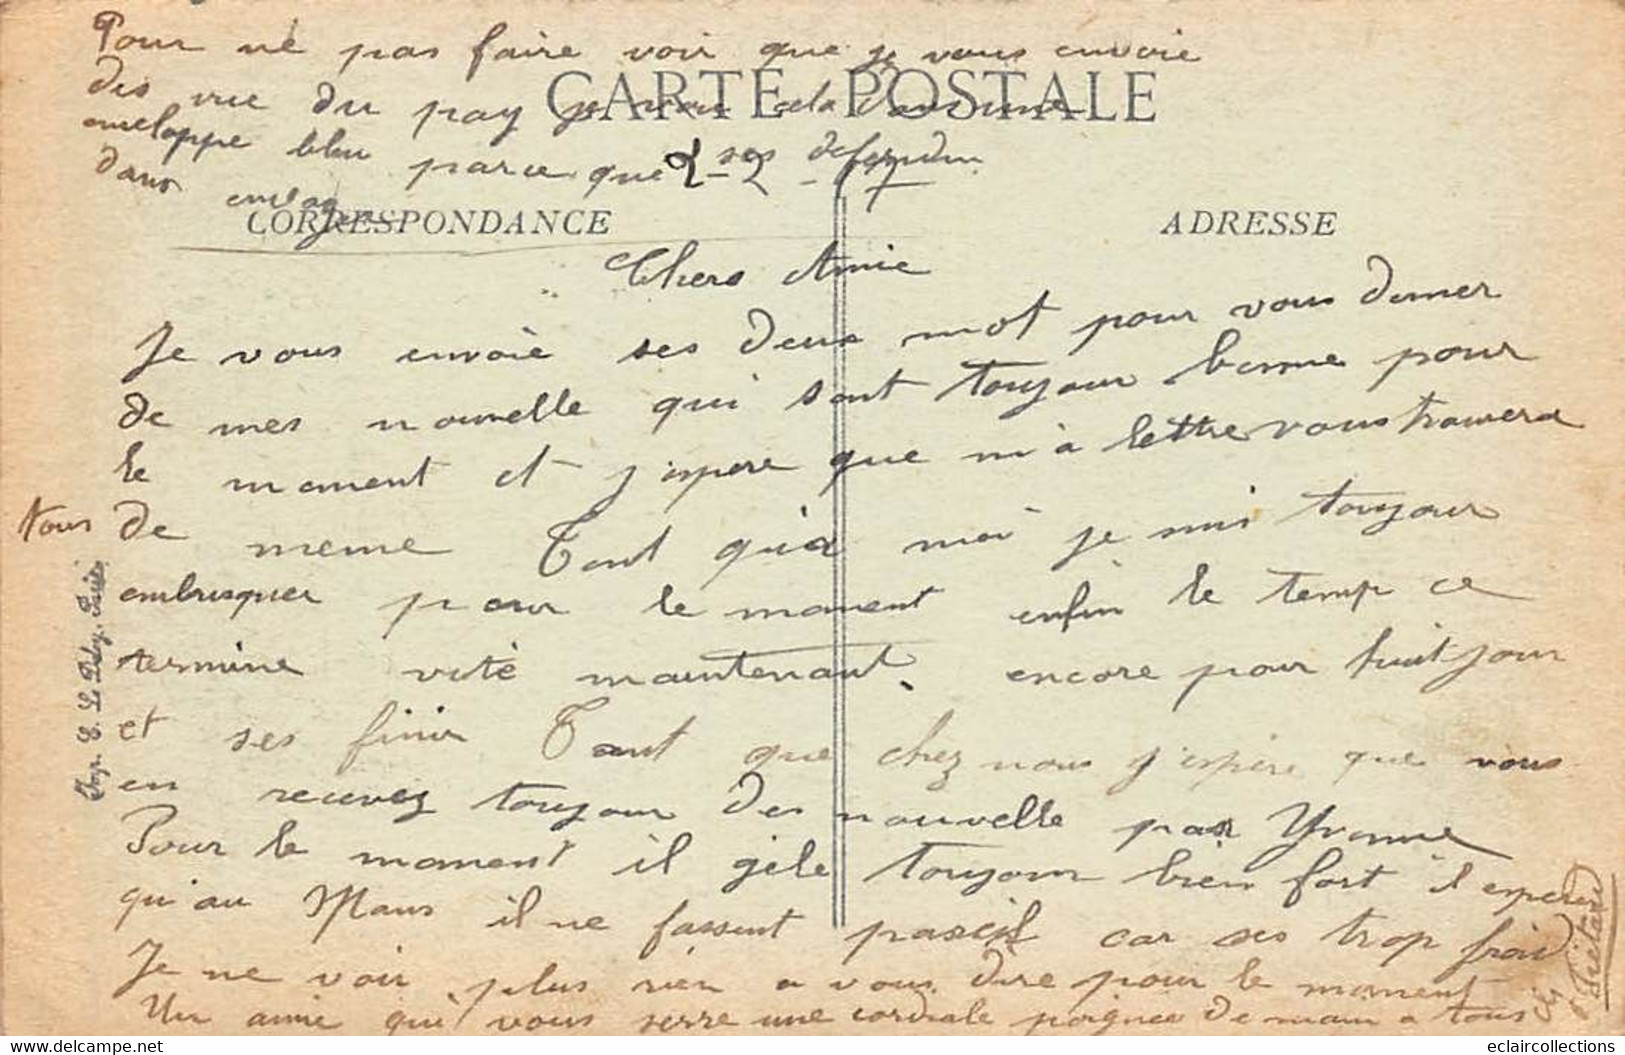 Pour ne pas faire voir que je vous envoie
des vue du pay je vous cela dans une
enveloppe bleu parce que ses defendu
dans
CARTE POSTALE
2-2-17
CORRESPONDANCE
ADRESSE
Chers Amie
Je vous envoie ses deux mot pour vous donner
de mes nouvelle qui sont toujour bonne pour
le moment et j'espere que m'a lettre vous trouvera
tous de meme Tant qu'a moi je suis toujour
embusquer pour le moment enfin le temp ce
termine vite maintenant. encore pour huit jour
et ses finir Tant que chez nous j'espère que vous
en recevez toujour des nouvelle par Yvonne
Pour le moment il gele toujour bien fort il esperer
qu'au Mans il ne fassent pareil car ses trop froid
Je ne voir plus rien a vous dire pour le moment
Un amie qui vous serre une cordiale poignee de main a tous
Imp. E. Le Deley, Paris
eclaircollections@hotmail.com
www.eclaircollections.com